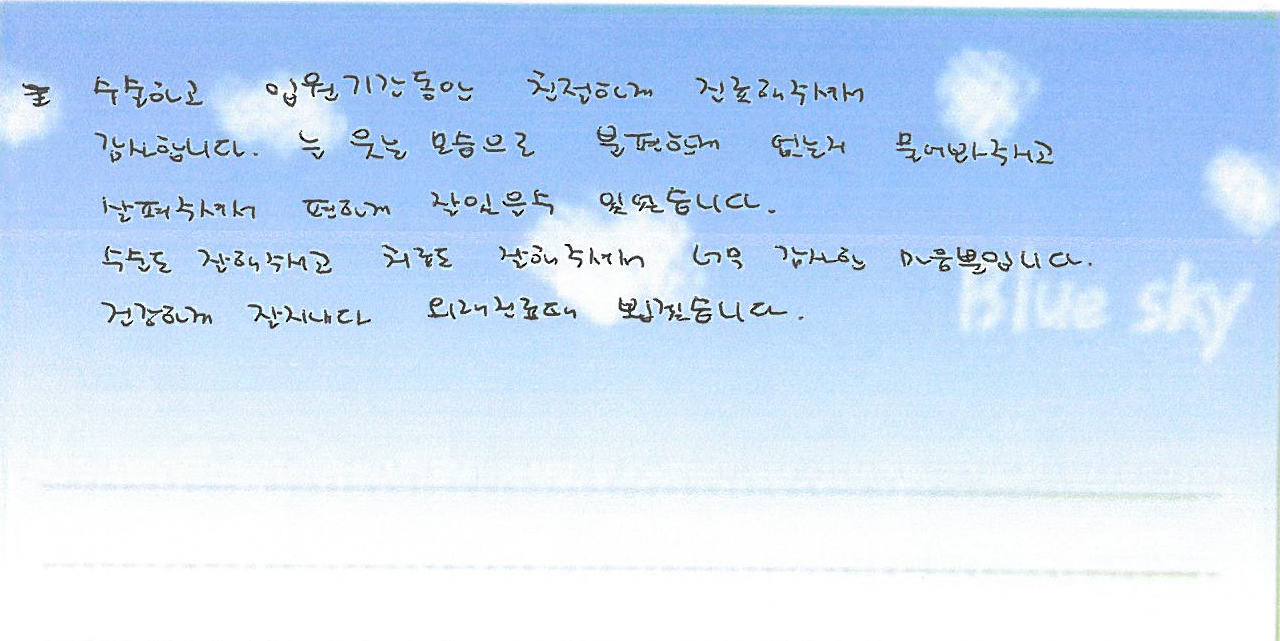 수술하고 입원기간동안 친절하게 진료해주셔서
감사합니다. 늘 웃는 모습으로 불편한게 없는지 물어봐주시고
살펴주셔서 편하게 잘있을수 있었습니다.
수술도 잘해주시고 치료도 잘해주셔서 너무 감사한 마음뿐입니다.
건강하게 잘지내다 외래진료때 뵙겠습니다.
Blue sky